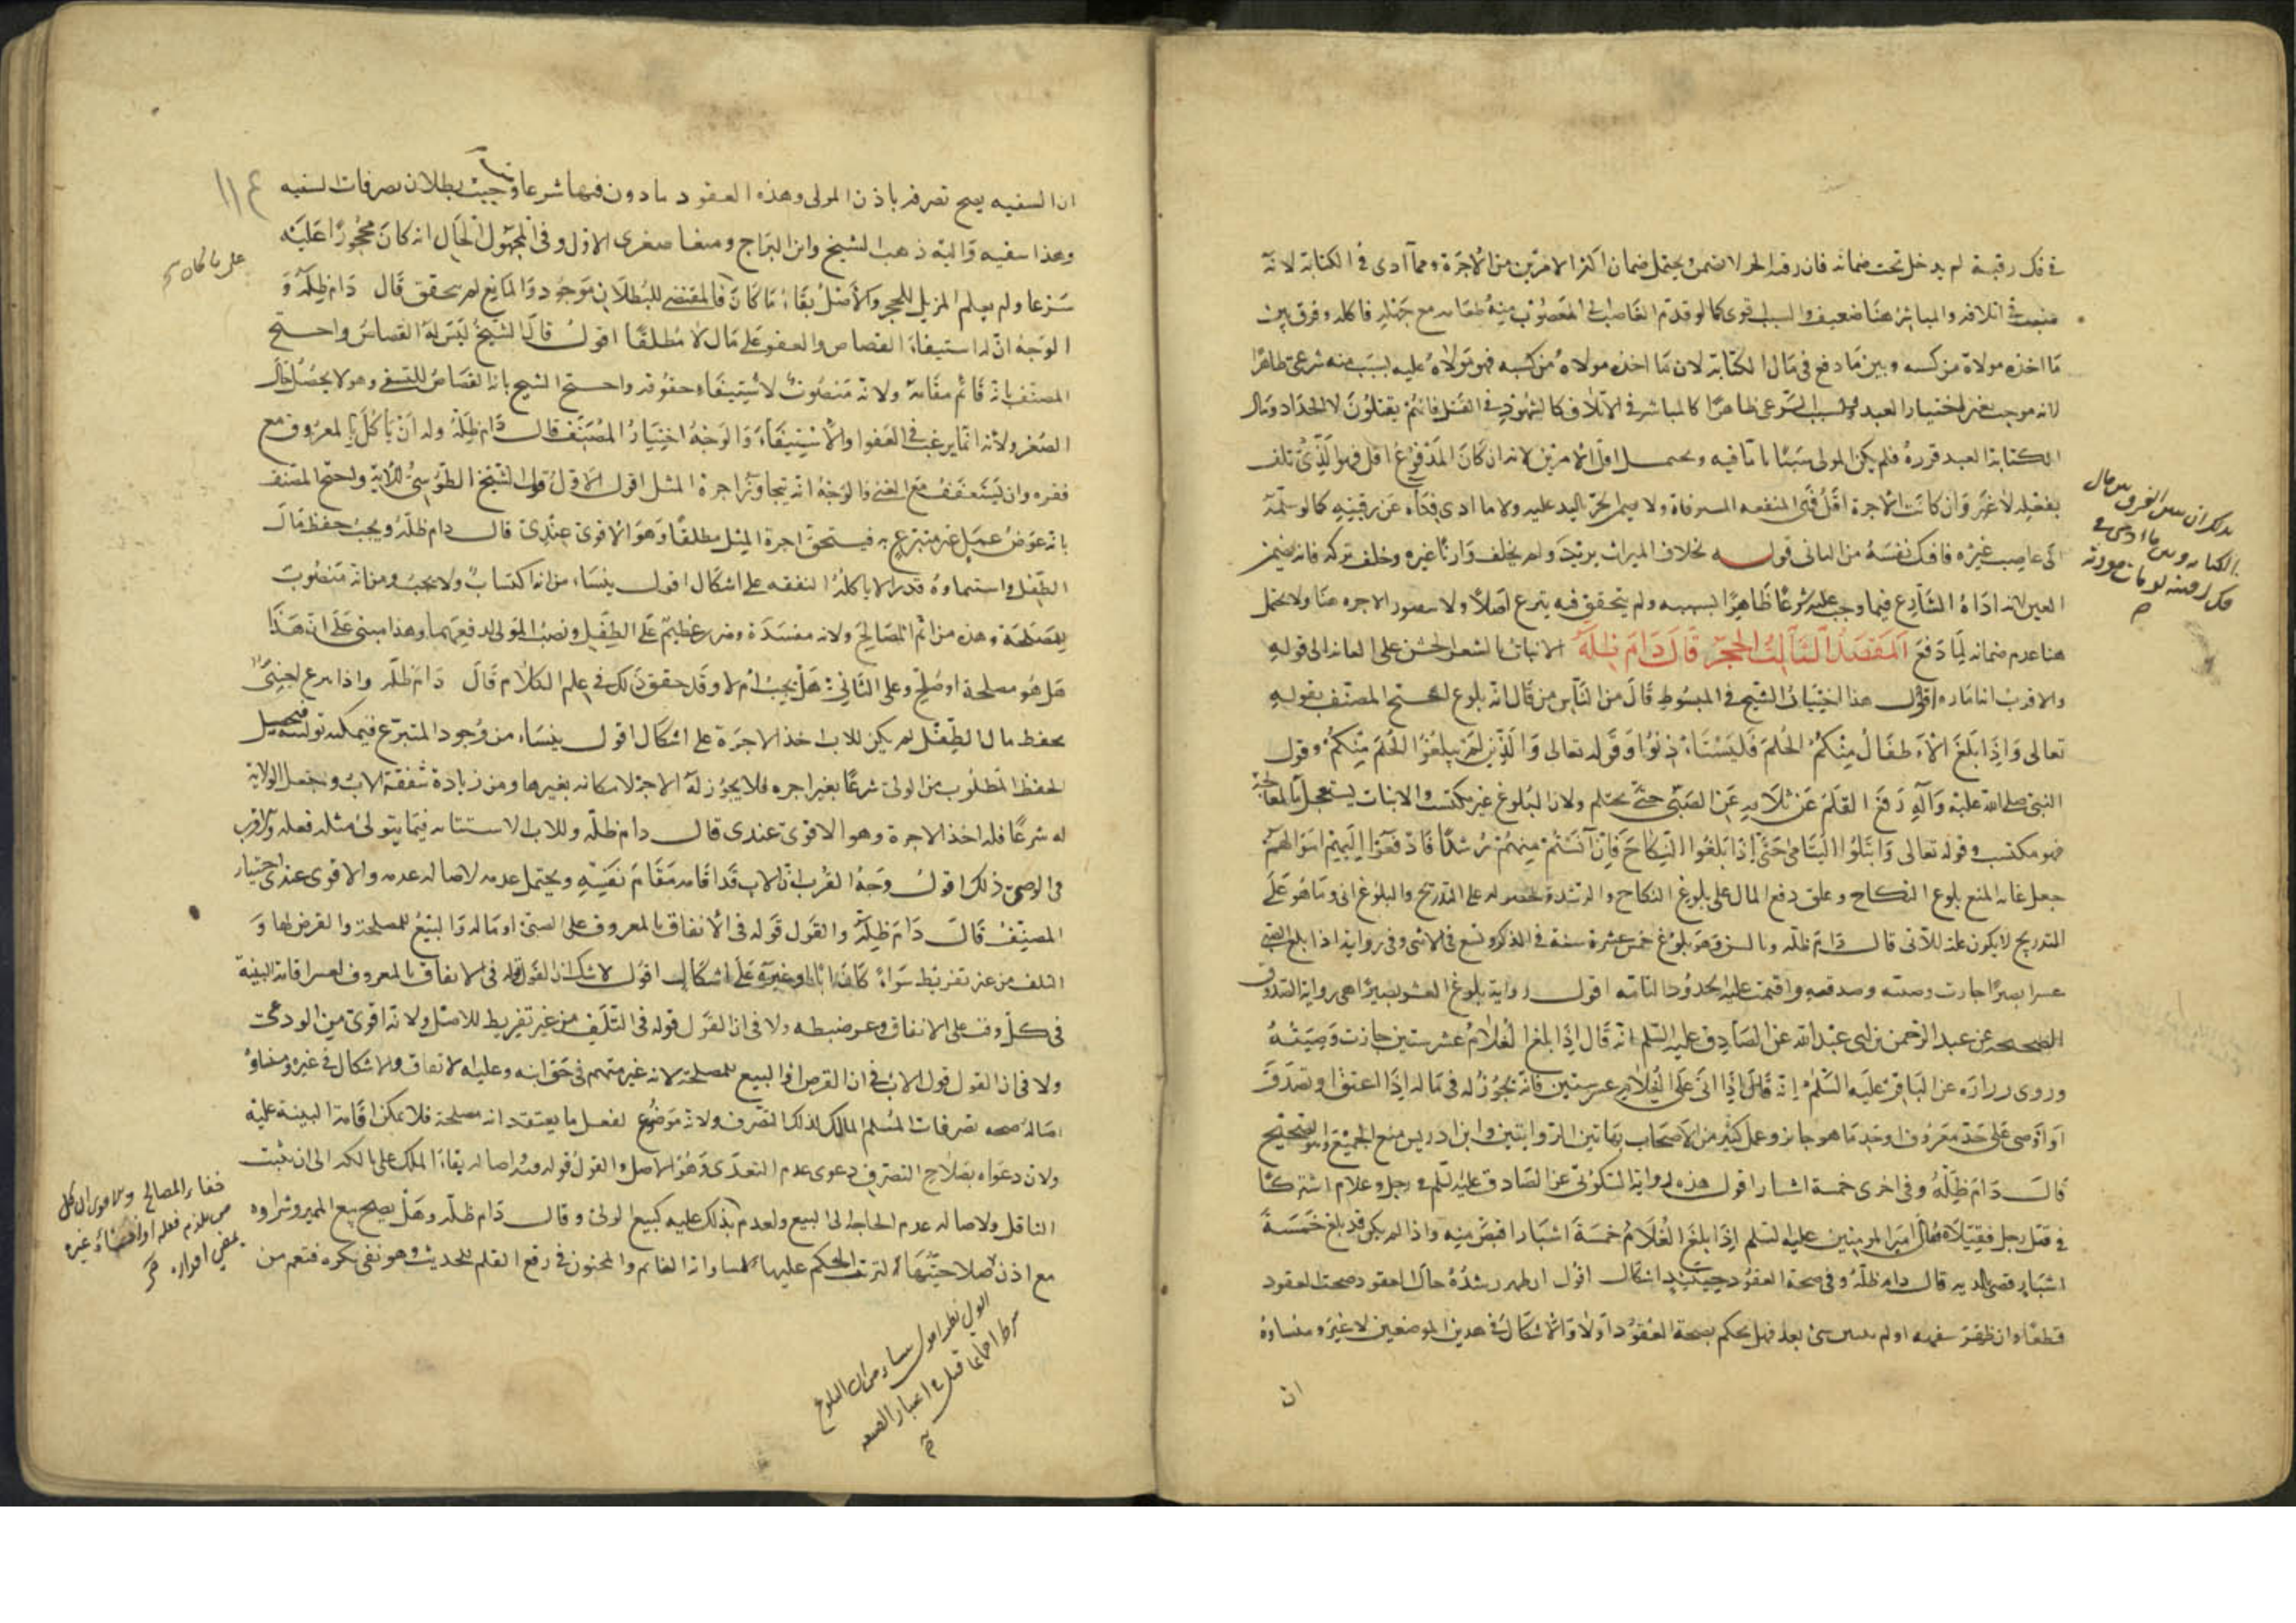 فى فك رقبة لم يدخل تحت ضمانه فان رقبة الحر لا تضمن ويحتمل ضمان اكثر الامرين من الاجرة ومما ادى فى الكتابة لانه
فى اتلافه والمباشر هنا ضعيف والسبب قوى كما لو قدم الغاصب الى المغصوب منه طعامه مع جهله فاكله وفرق بين
ما اخذه مولاه من كسبه وبين ما دفع فى مال الكتابة لان ما اخذه مولاه من كسبه فهو مولاه عليه بسبب منه شرعى ظاهرا
لانه موجب بغير اختيار العبد والسبب الشرعى ظاهرا كالمباشر فى الاتلاف كالشهود فى القتل فانهم يقتلون لا الحداد ومال
الكتابة العبد قرره فلم يكن المولى سببا تاما فيه ويحتمل اقل الامرين لانه ان كان المدفوع اقل فهو الذى تلف
بفعله لا غير وان كانت الاجرة اقل فهى المنفعة المستوفاة ولا يضمن الحر باليد عليه ولا ما ادى فداه عن رقبته كما لو سلمه
الى غاصب غيره فافك نفسه من الثانى قوله بخلاف الميراث يريد ولم يخلف وارثا غيره وخلف تركة فانه يضمن
العين لانه اداه الشارع فيما وجب عليه شرعا ظاهرا بسببه ولم يتحقق فيه تبرع اصلا ولا يتصور الاجرة هنا ولا يحتمل
هنا عدم ضمانه لما دفع المقصد الثالث الحجر قال دام ظله الانبات بالشعر الخشن على العانة الى قوله
والاقرب انها امارة اقول هذا اختيار الشيخ فى المبسوط قال من الناس من قال انه بلوغ احتج المصنف بقوله
تعالى واذا بلغ الاطفال منكم الحلم فليستأذنوا وقوله تعالى والذين لم يبلغوا الحلم منكم وقول
النبى صلى الله عليه وآله رفع القلم عن ثلاثه عن الصبى حتى يحتلم ولان البلوغ غير مكتسب والانبات يستعجل بالمعالجة
فهو مكتسب وقوله تعالى وابتلوا اليتامى حتى اذا بلغوا النكاح فان آنستم منهم رشدا فادفعوا اليهم اموالهم
جعل غاية المنع بلوغ النكاح وعلق دفع المال على بلوغ النكاح والرشد وحصوله على التدريج والبلوغ انى وما هو على
التدريج لا يكون علة للآنى قال دام ظله وبالسن وهو بلوغ خمس عشرة سنة فى الذكر وتسع فى الانثى وفى رواية اذا بلغ الصبى
عشرا بصيرا جازت وصيته وصدقته واقيمت عليه الحدود التامة اقول رواية بلوغ العشر بصيرا هى رواية الصدوق
الصحيحه عن عبد الرحمن بن ابى عبد الله عن الصادق عليه السلم انه قال اذا بلغ الغلام عشر سنين جازت وصيته
وروى زرارة عن الباقر عليه السلم انه قال اذا اتى على الغلام عشر سنين فانه يجوز له فى ماله اذا اعتق او تصدق
او اوصى على حد معروف او حد ما هو جايز وعمل كثير من الاصحاب بهاتين الروايتين وابن ادريس منع الجميع وهو الصحيح
قال دام ظله وفى اخرى خمسة اشبار اقول هذه رواية السكونى عن الصادق عليه السلم فى رجل وغلام اشتركا
فى قتل رجل فقتلاه فقال امير المومنين عليه السلم اذا بلغ الغلام خمسة اشبار اقتص منه واذا لم يكن قد بلغ خمسة
اشبار قضى بالدية قال دام ظله وفى صحة العقود حينئذ اشكال اقول ان ظهر رشده حال العقود صحت العقود
قطعا وان ظهر سفهه او لم يتبين شى بعد فهل يحكم بصحة العقود اولا والاشكال فى هذين الموضعين لا غير ومنشاوه
ان
ان السفيه يصح تصرفه باذن المولى وهذه العقود مأذون فيها شرعا وحيث بطلان تصرفات السفيه
١١٤
وهذا سفيه واليه ذهب الشيخ وابن البراج ومنعا صغرى الاول وفى المجهول الحال انه كان محجورا عليه
على ما كان
شرعا ولم يعلم المزيل للحجر والاصل بقاء ما كان فالمقتضى للبطلان موجود والمانع لم يتحقق قال دام ظله و
الوجه ان له استيفاء القصاص والعفو على مال لا مطلقا اقول قال الشيخ ليس له القصاص واحتج
المصنف بانه قائم مقامه ولانه منصوب لاستيفاء حقوقه واحتج الشيخ بان القصاص للتشفى وهو لا يحصل حال
الصغر ولانه انما يرغب فى العفو او الاستيفاء والوجه اختيار المصنف قال دام ظله وله ان يأكل بالمعروف مع
فقره وان يستعفف مع الغنى والوجه انه يتجاوز اجرة المثل اقول الاول قول الشيخ الطوسى للآية واحتج المصنف
بانه عوض عمل غير متبرع به فيستحق اجرة المثل مطلقا وهو الاقوى عندى قال دام ظله ويجب حفظ مال
الطفل واستنماوه قدرا لا ياكله النفقه على اشكال اقول ينشاء من انه اكتساب ولا يجب ومن انه منصوب
للمصلحة وهذه من اتم المصالح ولانه مفسدة وضرر عظيم على الطفل ونصب المولى لدفعهما وهذا مبنى على ان هذا
هل هو مصلحة او صلح وعلى الثانى هل يجب ام لا وقد حقق ذلك فى علم الكلام قال دام ظله واذا تبرع اجنبى
بحفظ مال الطفل لم يكن للاب اخذ الاجرة على اشكال اقول ينشاء من وجود المتبرع فيمكنه تحصيل
الحفظ المطلوب من الولى شرعا بغير اجرة فلا يجوز له الاجرة لامكانه بغيرها ومن زيادة شفقة الاب وجعل الولاية
له شرعا فله اخذ الاجرة وهو الاقوى عندى قال دام ظله وللاب الاستنابه فيما يتولى مثله فعله والاقرب
فى الوصى ذلك اقول وجه القرب ان الاب قد اقامه مقام نفسه ويحتمل عدمه لاصالة عدمه والاقوى عندى اختيار
المصنف قال دام ظله والقول قوله فى الانفاق بالمعروف على الصبى او ماله والبيع للمصلحة والقرض لها و
التلف من غير تفريط سواء كان ابا او غيره على اشكال اقول لا شك ان القول قوله فى الانفاق بالمعروف لعسر اقامة البينة
فى كل وقت على الانفاق وعسر ضبطه ولا فى ان القول قوله فى التلف من غير تفريط للاصل ولانه اقوى من الودعى
ولا فى ان القول قول الاب فى ان القرض او البيع للمصلحة لانه غير متهم فى حق ابنه وعليه الاتفاق والاشكال فى غيره ومنشاوه
اصالة صحه تصرفات المسلم المالك لذلك التصرف ولانه موضوع لفعل ما يعتقد انه مصلحة فلا يمكن اقامة البينة عليه
ولان دعواه بصلاح التصرف دعوى عدم التعدى وهو الاصل والقول قوله ومن اصالة بقاء الملك على مالكه الى ان يثبت
الناقل ولاصالة عدم الحاجة الى البيع ولعدم بذلك عليه كبيع الولى وقال دام ظله وهل يصح بيع المميز وشراوه
مع اذن لصلاحيتها لترتب الحكم عليها لمساواته النائم والمجنون فى رفع القلم للحديث وهو نفى نكرة فتعم من